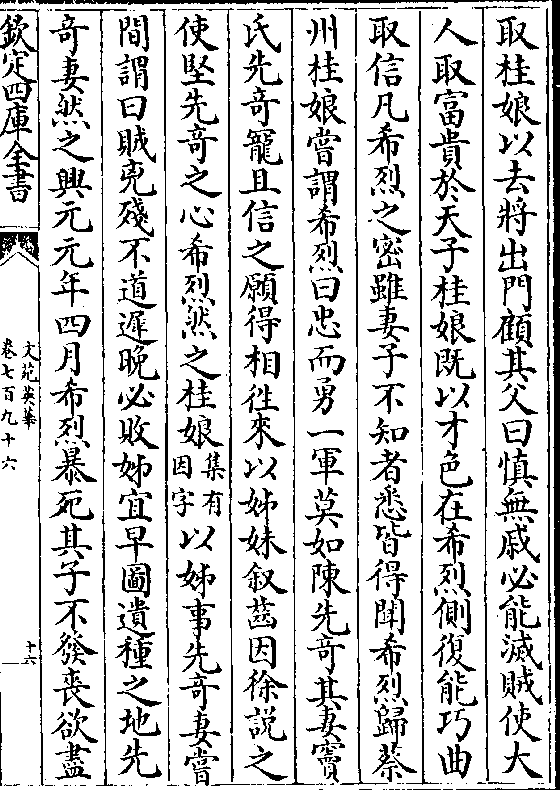 取桂娘以去將出門顧其父曰慎無戚必能滅賊使大
人取富貴於天子桂娘既以才色在希烈側復能巧曲
取信凡希烈之密雖妻子不知者悉皆得聞希烈歸蔡
州桂娘嘗謂希烈曰忠而勇一軍莫如陳先竒其妻竇
氏先竒寵且信之願得相徃來以姊妹叙茲因徐説之
使堅先竒之心希烈然之桂娘集有因字以姊事先竒妻嘗
間謂曰賊兇殘不道遲晚必敗姊宜早圖遺種之地先
竒妻然之興元元年四月希烈暴死其子不發喪欲盡
欽定四庫全書
文苑英華
卷七百九十六
十六